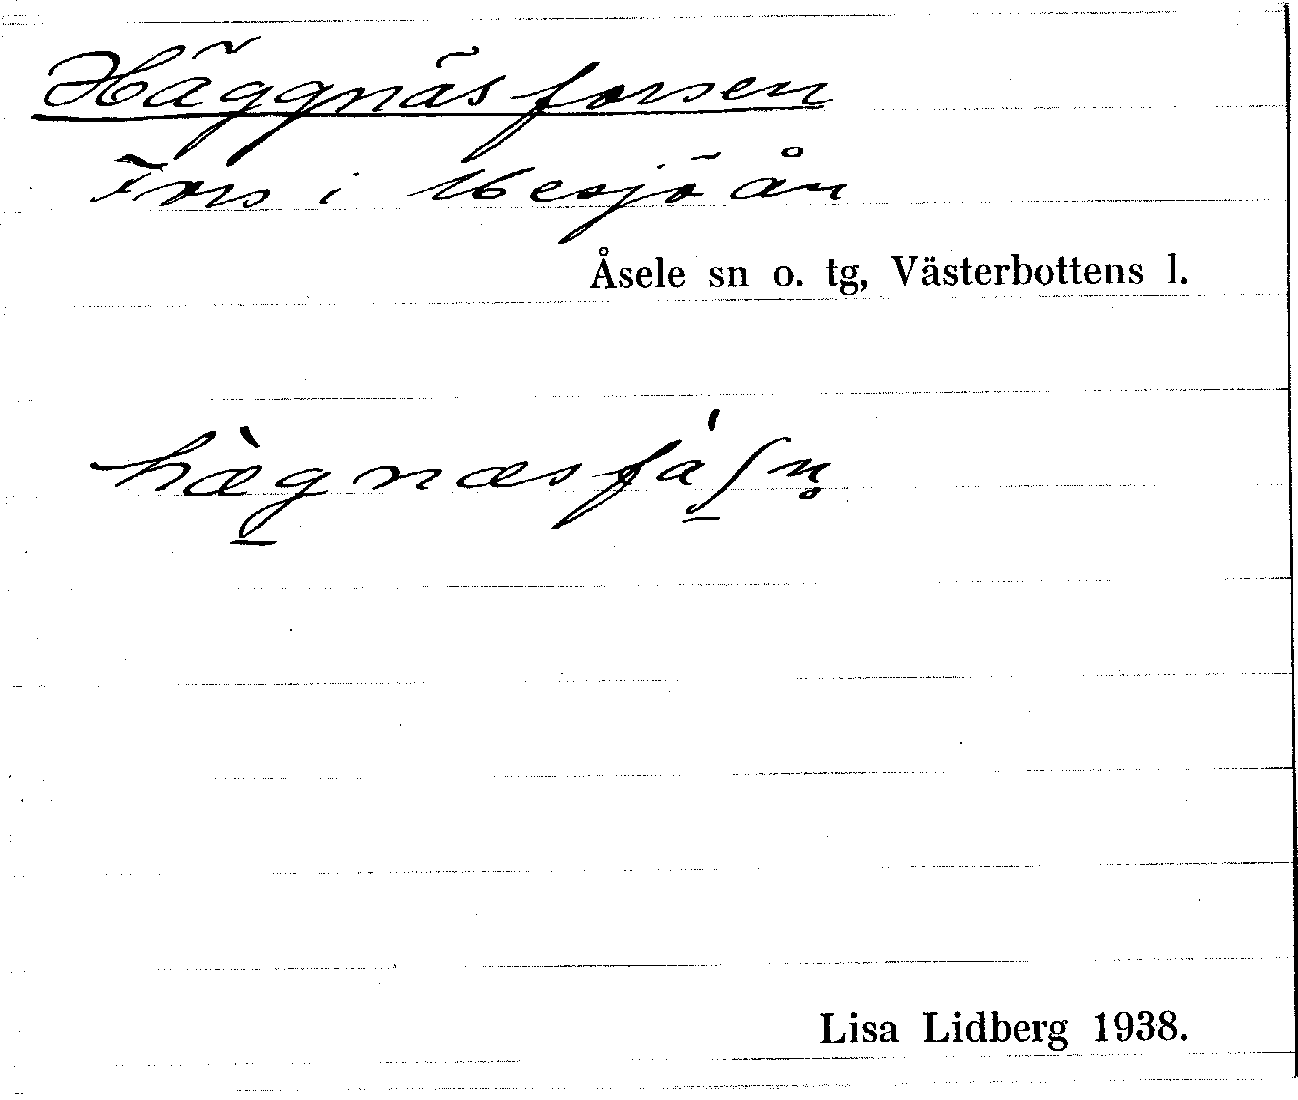 Häggnäsforsen
Fors i Vesjöån
Åsele sn o. tg, Västerbottens l.
hæ̀g̲næsfá̲ʃn̥
Lisa Lidberg 1938.